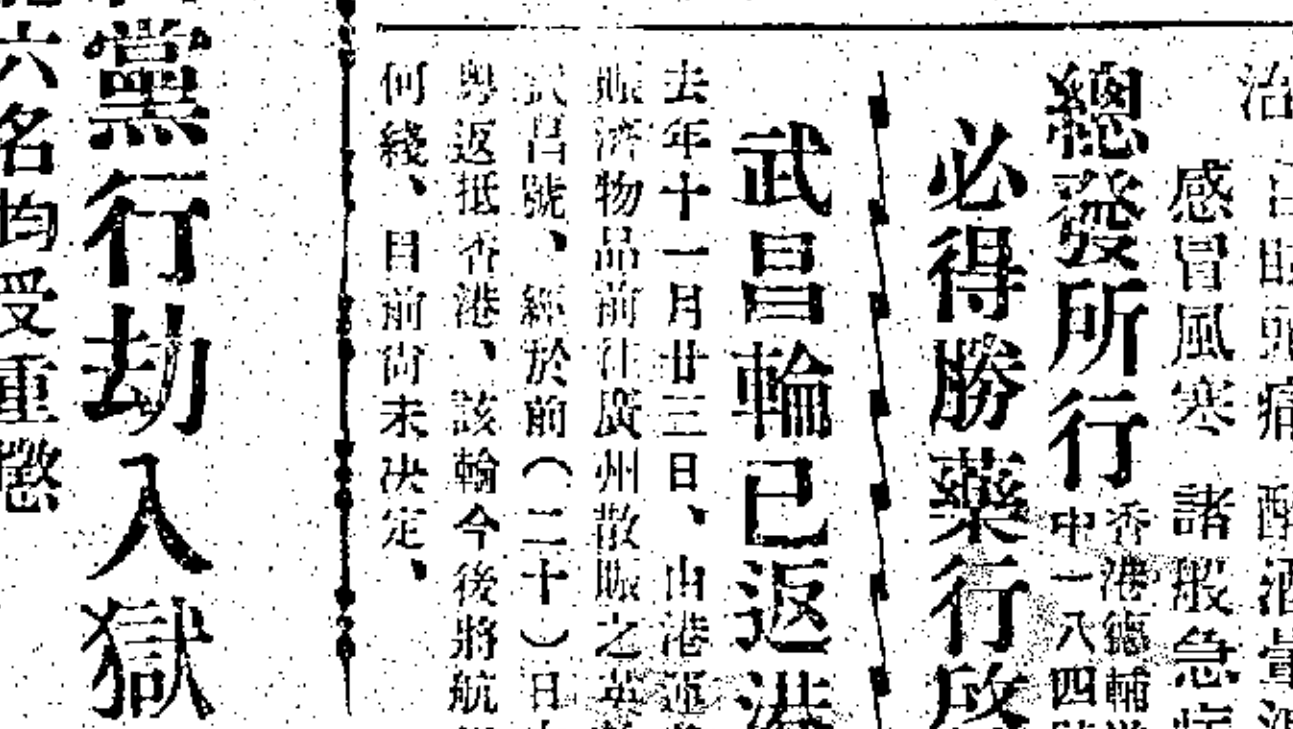 治
白眼頭痛 酒暈
感冒風寒 諸般急症
總發所行
香港德輔道
中一八四號
必得勝藥行啟
武昌輪已返港
去年十一月廿三日、由港運
賑濟物品前往廣州散賑之英
武昌號、經於前（二十）日
粵返抵香港、該輪今後將航
何綫、目前尚未决定、
黨行劫入獄
六名均受重懲